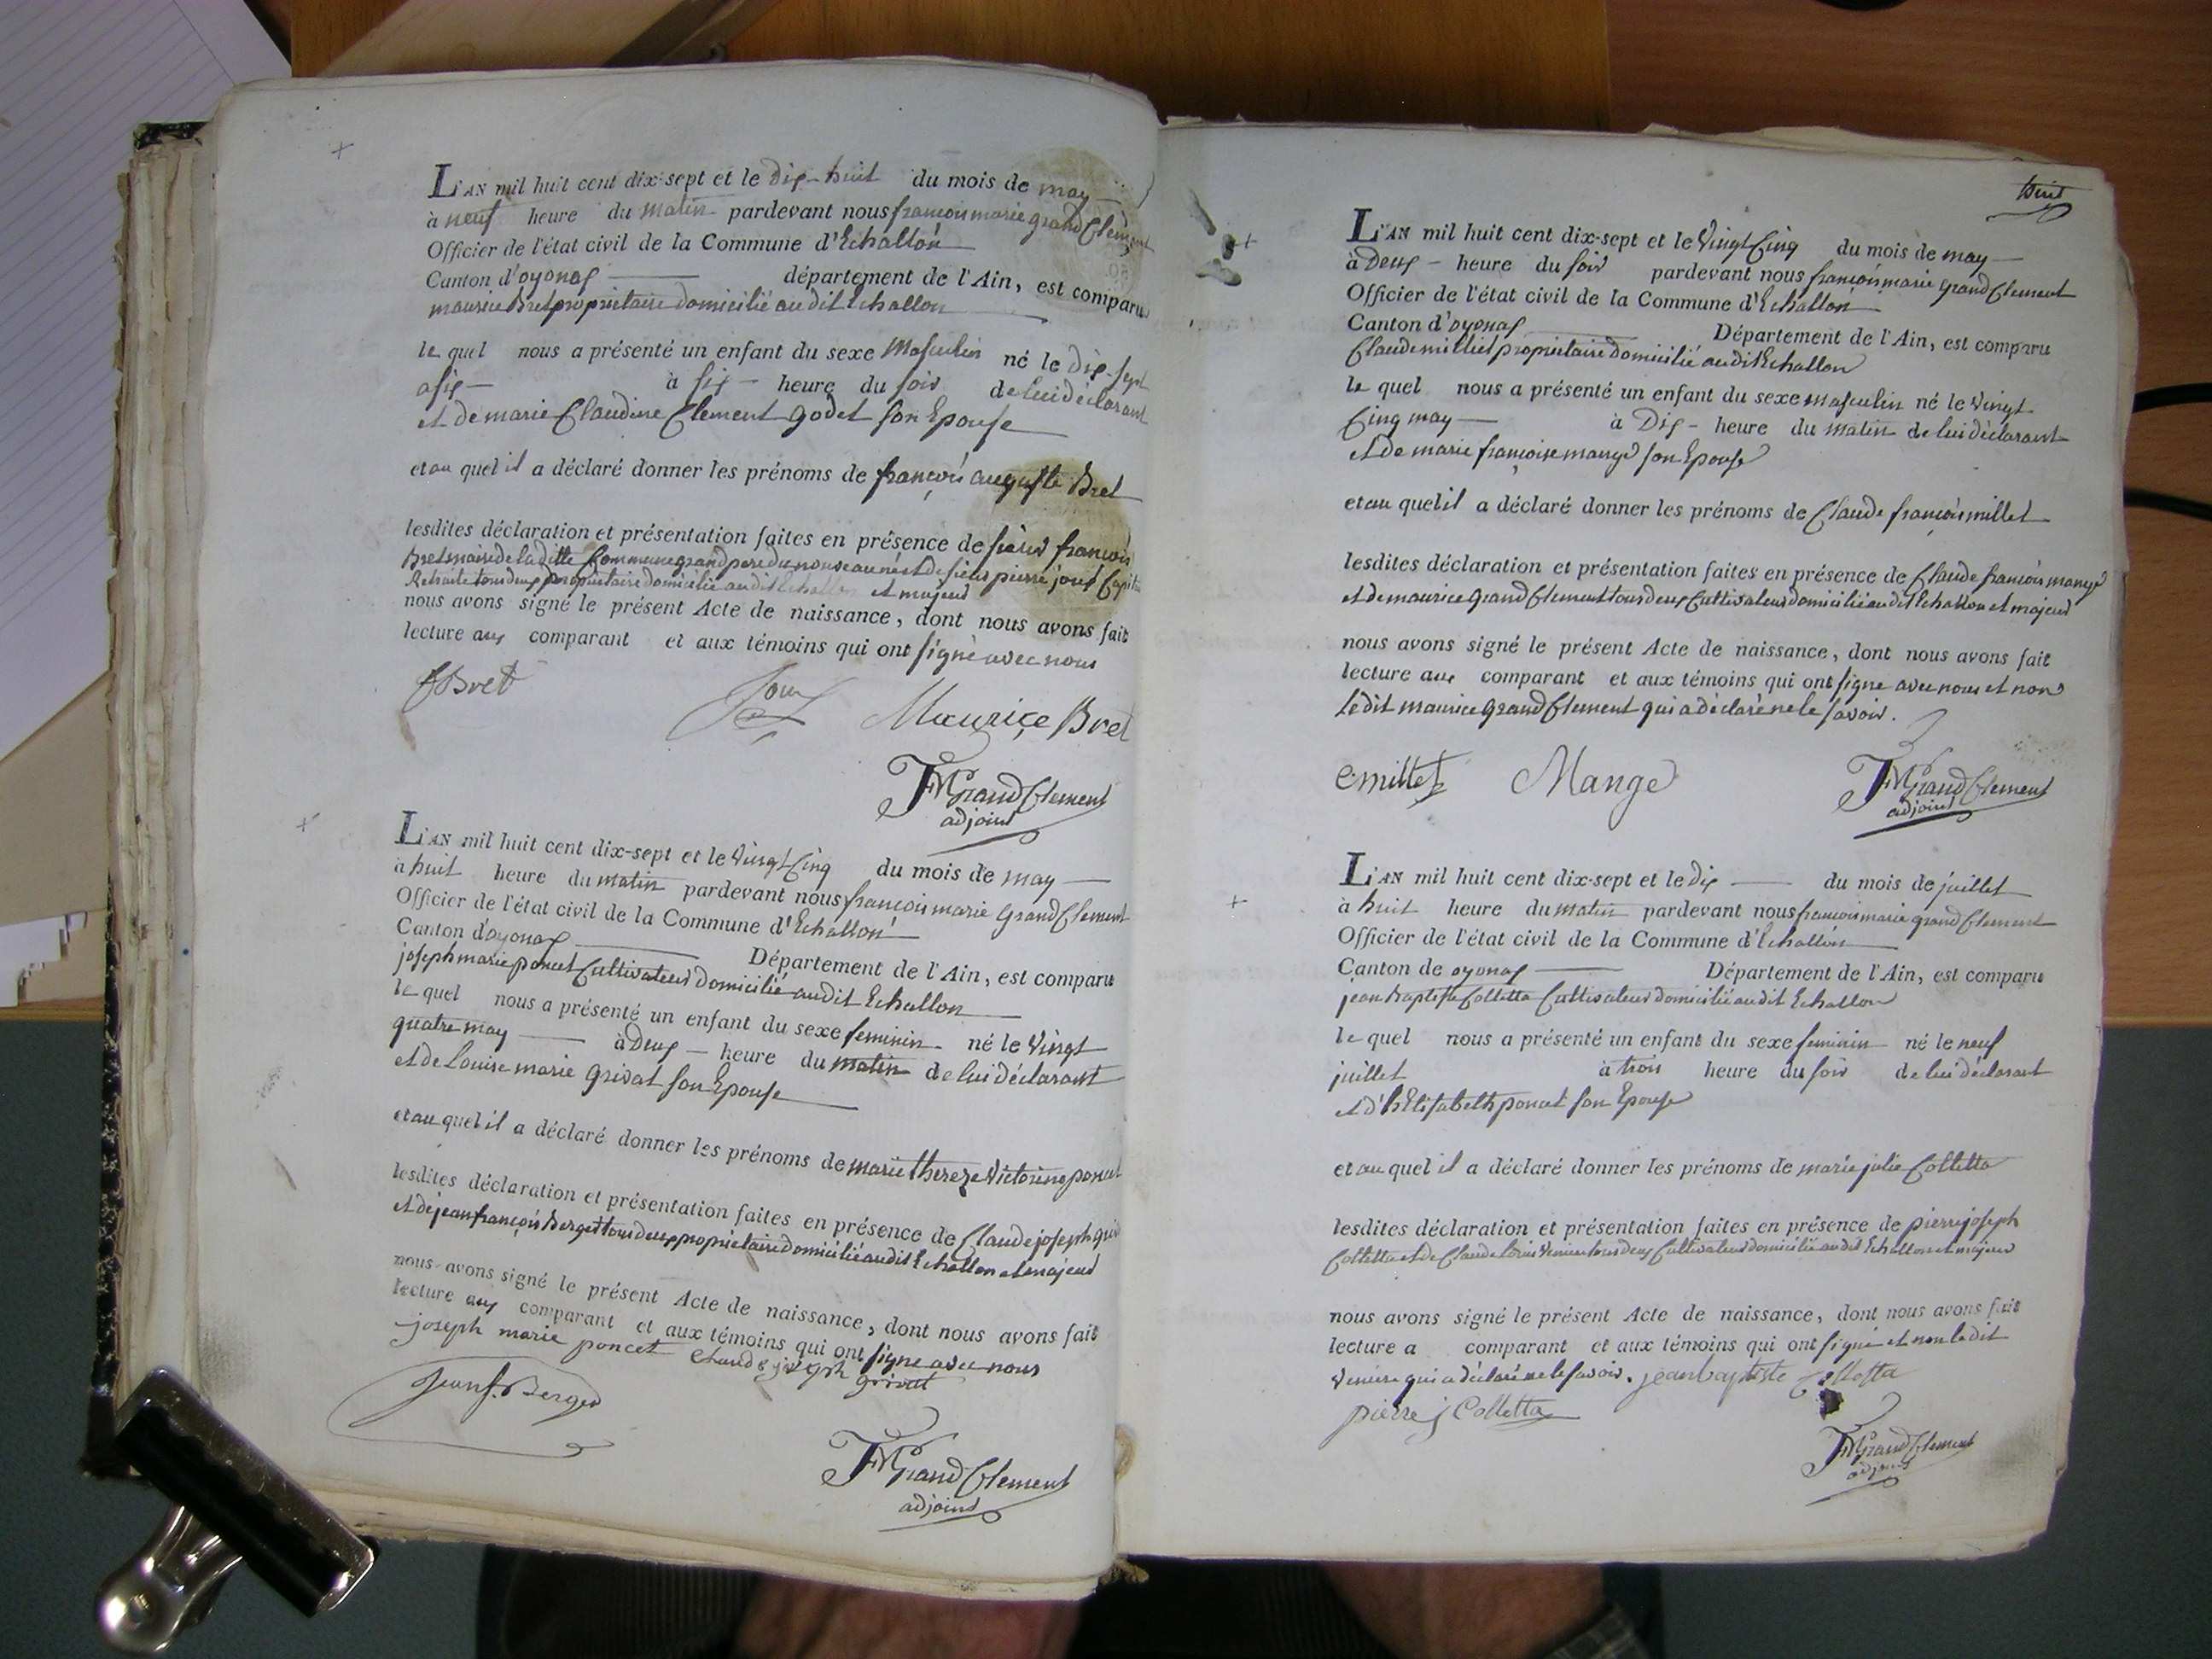 L'AN mil huit cent dix-sept et le dix-huit du mois de may
à neuf heure du matin pardevant nous francois marie grand Clement
Officier de l'état civil de la Commune d'Echallon
Canton d'oyonax département de l'Ain, est comparu
maurice Bret propriétaire domicilié au dit Echallon
le quel nous a présenté un enfant du sexe Masculin né le dix-sept
à six heure du soir de lui déclarant
et de marie Claudine Clement godet son Epouse
et au quel il a déclaré donner les prénoms de françois auguste Bret
lesdites déclaration et présentation faites en présence de sieur francois
Bret maire de la ditte Commune grand pere du nouveau né et de sieur pierre
Retraité tous deux propriétaire domicilié au dit Echallon et majeur
nous avons signé le présent Acte de naissance, dont nous avons fait
lecture aux comparant et aux témoins qui ont signé avec nous
fBret Maurice Bret
FMGrandClement
adjoint
L'AN mil huit cent dix-sept et le vingt Cinq du mois de may
à huit heure du matin pardevant nous francois marie Grand Clement
Officier de l'état civil de la Commune d'Echallon
Canton d'oyonax Département de l'Ain, est comparu
joseph marie poncet Cultivateur domicilié audit Echallon
le quel nous a présenté un enfant du sexe feminin né le vingt
quatre may à deux heure du matin de lui déclarant
et de Louise marie Grivat son Epouse
et au quel il a déclaré donner les prénoms de marie thereze victorine poncet
lesdites déclaration et présentation faites en présence de Claude joseph
et de jean françois Berger tous deux propriétaire domicilié audit Echallon et majeur
nous avons signé le présent Acte de naissance, dont nous avons fait
lecture aux comparant et aux témoins qui ont signé avec nous
joseph marie poncet claude joseph grivat
jean f. Berger
FMGrandClement
adjoint
huit
L'AN mil huit cent dix-sept et le vingt Cinq du mois de may
à Deux heure du soir pardevant nous françois marie grand Clement
Officier de l'état civil de la Commune d'Echallon
Canton d'oyonax Département de l'Ain, est comparu
Claude milliet propriétaire domicilié audit Echallon
le quel nous a présenté un enfant du sexe masculin né le vingt
Cinq may à Dix heure du matin de lui déclarant
et de marie françoise mange son Epouse
et au quel il a déclaré donner les prénoms de Claude françois millet
lesdites déclaration et présentation faites en présence de Claude françois mange
et de maurice grand Clement tous deux Cultivateur domicilié audit Echallon et majeur
nous avons signé le présent Acte de naissance, dont nous avons fait
lecture aux comparant et aux témoins qui ont signé avec nous et non
le dit maurice grand Clement qui a déclaré ne le savoir.
Cmillet Mange FMGrandClement
adjoint
L'AN mil huit cent dix-sept et le dix du mois de juillet
à huit heure du matin pardevant nous francois marie grand Clement
Officier de l'état civil de la Commune d'Echallon
Canton de oyonax Département de l'Ain, est comparu
jean Baptiste Colletta Cultivateur domicilié audit Echallon
le quel nous a présenté un enfant du sexe feminin né le neuf
juillet à trois heure du soir de lui déclarant
et d'hElisabeth poncet son Epouse
et au quel il a déclaré donner les prénoms de marie julie Colletta
lesdites déclaration et présentation faites en présence de pierre joseph
Colletta et de Claude Louis tous deux Cultivateur domicilié audit Echallon et majeur
nous avons signé le présent Acte de naissance, dont nous avons fait
lecture a comparant et aux témoins qui ont signé et non le dit
qui a déclaré ne le savoir. jean baptiste Colletta
pierre j Colletta
FMGrandClement
adjoint